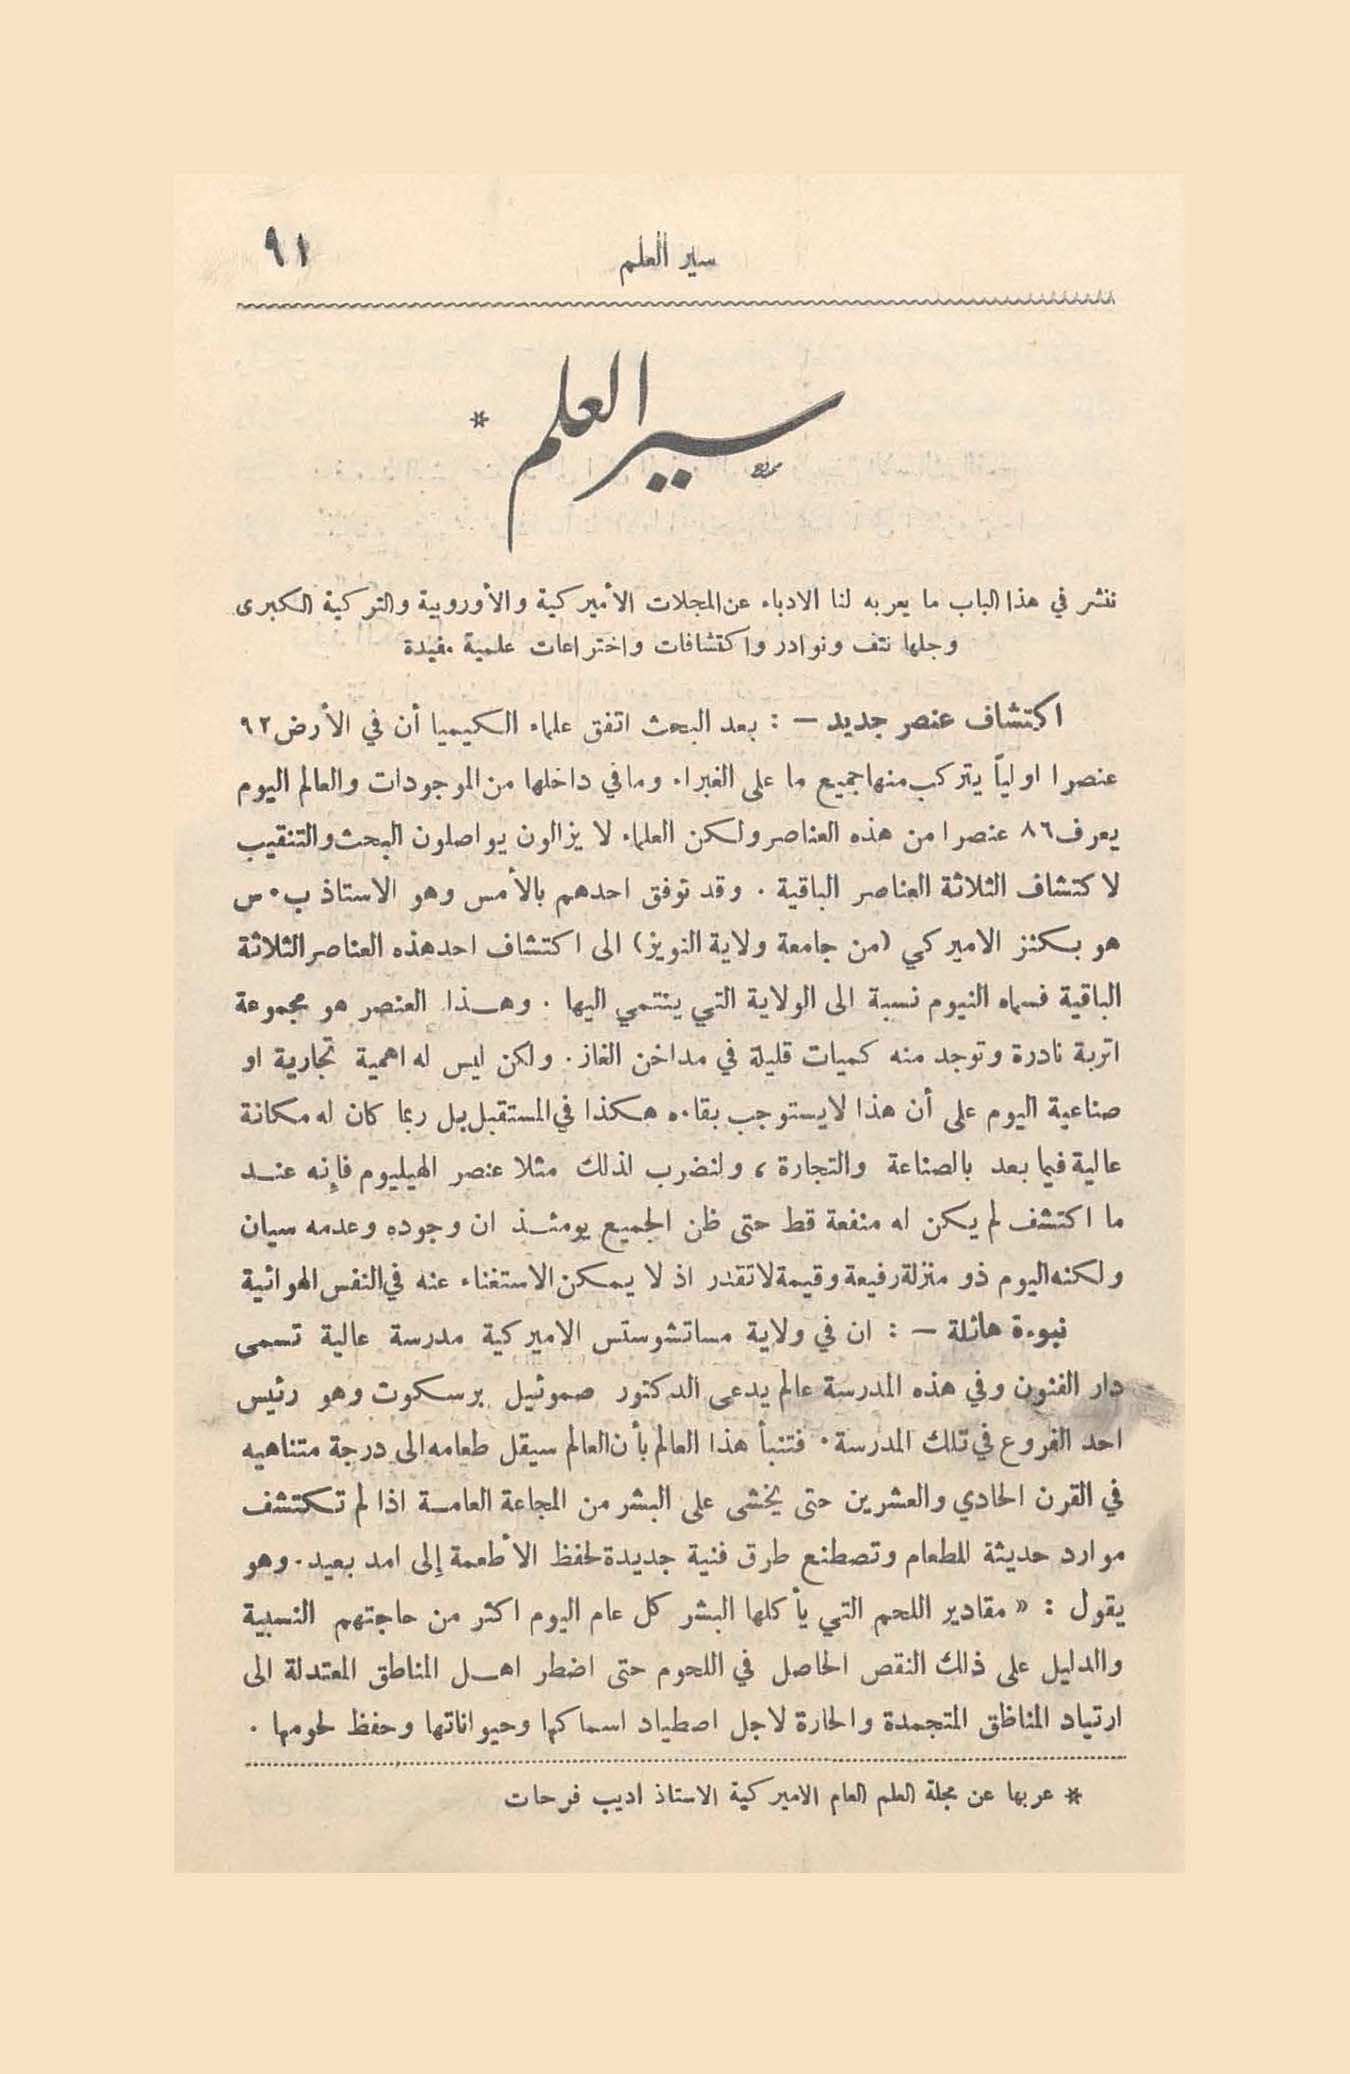 سير العلم ٩١
سير العلم *
ننشر في هذا الباب ما يعربه لنا الادباء عن المجلات الأميركية والأوروبية والتركية الكبرى
وجلها نتف ونوادر واكتشافات واختراعات علمية مفيدة
اكتشاف عنصر جديد — : بعد البحث اتفق علماء الكيميا أن في الأرض ٩٢
عنصرا اولياً يتركب منها جميع ما على الغبراء وما في داخلها من الموجودات والعالم اليوم
يعرف ٨٦ عنصرا من هذه العناصر ولكن العلماء لا يزالون يواصلون البحث والتنقيب
لاكتشاف الثلاثة العناصر الباقية . وقد توفق احدهم بالأمس وهو الاستاذ ب . س
هو بكنز الاميركي (من جامعة ولاية النويز) الى اكتشاف احد هذه العناصر الثلاثة
الباقية فسماه النيوم نسبة الى الولاية التي ينتمي اليها . وهذا العنصر هو مجموعة
اتربة نادرة وتوجد منه كميات قليلة في مداخن الغاز . ولكن ليس له اهمية تجارية او
صناعية اليوم على أن هذا لا يستوجب بقاءه هكذا في المستقبل بل ربما كان له مكانة
عالية فيما بعد بالصناعة والتجارة ، ولنضرب لذلك مثلا عنصر الهيليوم فإنه عند
ما اكتشف لم يكن له منفعة قط حتى ظن الجميع يومئذ ان وجوده وعدمه سيان
ولكنه اليوم ذو منزلة رفيعة وقيمة لا تقدر اذ لا يمكن الاستغناء عنه في النفس الهوائية
نبوءة هائلة — : ان في ولاية مساتشوستس الاميركية مدرسة عالية تسمى
دار الفنون وفي هذه المدرسة عالم يدعى الدكتور صموئيل برسكوت وهو رئيس
احد الفروع في تلك المدرسة . فتنبأ هذا العالم بأن العالم سيقل طعامه الى درجة متناهيه
في القرن الحادي والعشرين حتى يخشى على البشر من المجاعة العامة اذا لم تكتشف
موارد حديثة للطعام وتصطنع طرق فنية جديدة لحفظ الأطعمة إلى امد بعيد . وهو
يقول : « مقادير اللحم التي يأكلها البشر كل عام اليوم اكثر من حاجتهم النسبية
والدليل على ذلك النقص الحاصل في اللحوم حتى اضطر اهل المناطق المعتدلة الى
ارتياد المناظق المتجمدة والحارة لاجل اصطياد اسماكها وحيواناتها وحفظ لحومها .
* عربها عن مجلة العلم العام الاميركية الاستاذ اديب فرحات